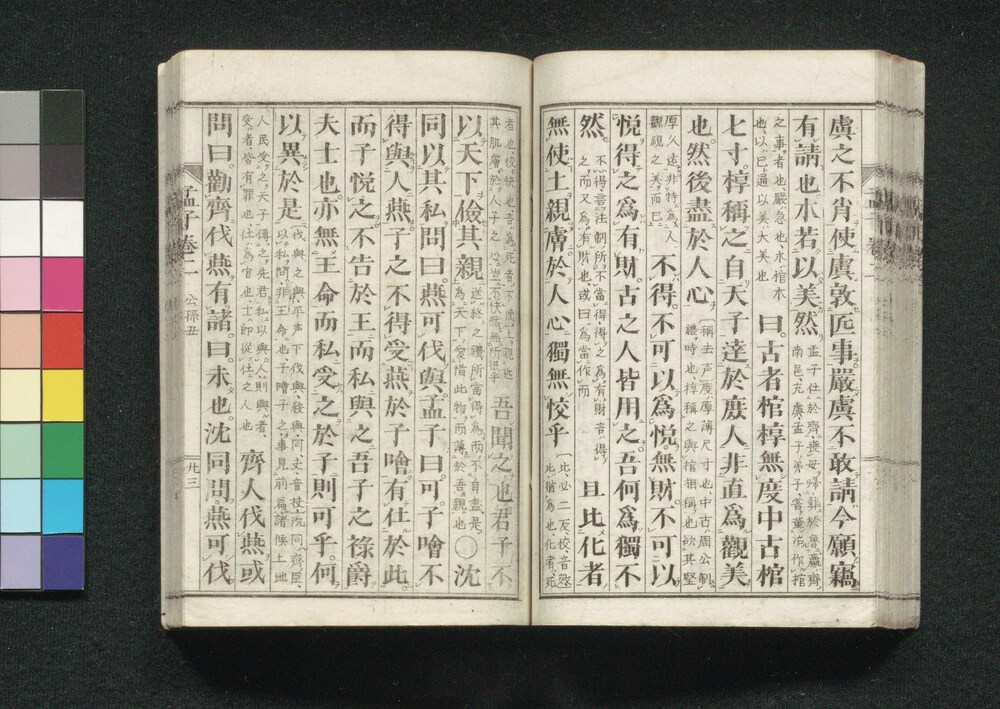 虞之不肖使虞敦匠事嚴虞不敢請今願竊
有請也木若以美然孟子仕於齊喪母歸葬於魯嬴齊南邑充虞孟子弟子嘗董治作棺
之事者也嚴急也木棺木也以已通以美大美也曰古者棺椁無度中古棺
七寸椁稱之自天子達於庶人非直爲觀美
也然後盡於人心稱去声度厚薄尺寸也中古周公制禮時也椁稱之與棺相稱也欲其堅
厚久遠非特爲人觀視之美而已不得不可以爲悅無財不可以
悅得之爲有財古之人皆用之吾何爲獨不
然不得言法制所不當得得之爲有財言得之而又爲有財也或曰爲當作而且比化者
無使土親膚於人心獨無恔乎比必二反恔音效比猶爲也化者死
者也恔快也言爲死者不使土親近其肌膚於人子之心豈不快然無所恨乎吾聞之也君子不
以天下儉其親送終之禮所當得爲而不自盡是爲天下愛惜此物而薄於吾親也○沈
同以其私問曰燕可伐與孟子曰可子噲不
得與人燕子之不得受燕於子噲有仕於此
而子悅之不告於王而私與之吾子之祿爵
夫士也亦無王命而私受之於子則可乎何
以異於是伐與之與平声下伐與殺與同夫音扶沈同齊臣以私問非王命也子噲子之事見前篇諸侯土地
人民受之天子傳之先君私以與人則與者受者皆有罪也仕爲官也士即從仕之人也齊人伐燕或
問曰勸齊伐燕有諸曰未也沈同問燕可伐
孟子卷二
公孫丑
廿三